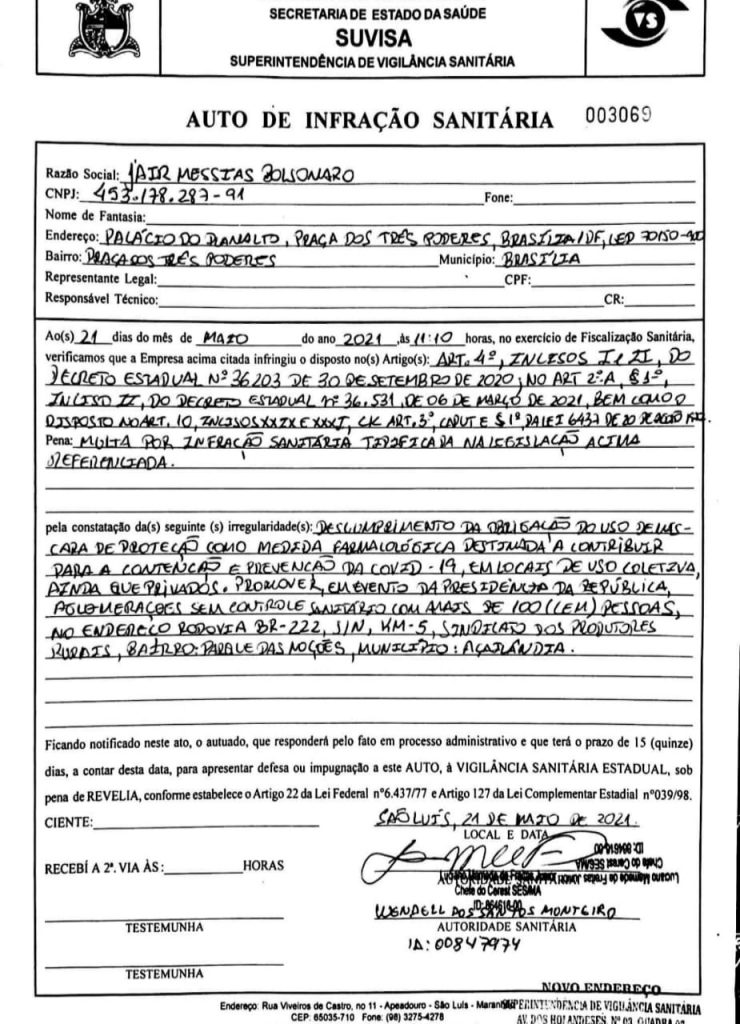 SECRETARIA DE ESTADO DA SAÚDE
SUVISA
SUPERINTENDÊNCIA DE VIGILÂNCIA SANITÁRIA
VS
AUTO DE INFRAÇÃO SANITÁRIA 003069
Razão Social: JAIR MESSIAS BOLSONARO
CNPJ: 453.178.287-91 Fone:
Nome de Fantasia:
Endereço: PALÁCIO DO PLANALTO, PRAÇA DOS TRÊS PODERES, BRASÍLIA/DF, CEP 70150-900
Bairro: PRAÇA DOS TRÊS PODERES Município: BRASÍLIA
Representante Legal: CPF:
Responsável Técnico: CR:
Ao(s) 21 dias do mês de MAIO do ano 2021, às 11:10 horas, no exercício de Fiscalização Sanitária,
verificamos que a Empresa acima citada infringiu o disposto no(s) Artigo(s): ART. 4º, INCISOS I e II, DO
DECRETO ESTADUAL Nº 36203 DE 30 DE SETEMBRO DE 2020, NO ART 2º-A, § 1º,
INCISO II, DO DECRETO ESTADUAL Nº 36.531, DE 06 DE MARÇO DE 2021, BEM COMO O
DISPOSTO NO ART. 10, INCISOS XXIX E XXXI, C/C ART. 3º, CAPUT E § 1º DA LEI 6437 DE 20 DE AGOSTO
Pena: MULTA POR INFRAÇÃO SANITÁRIA TIPIFICADA NA LEGISLAÇÃO ACIMA
REFERENCIADA.
pela constatação da(s) seguinte (s) irregularidade(s): DESCUMPRIMENTO DA OBRIGAÇÃO DO USO DE MÁS-
CARA DE PROTEÇÃO COMO MEDIDA FARMACOLÓGICA DESTINADA A CONTRIBUIR
PARA A CONTENÇÃO E PREVENÇÃO DA COVID-19, EM LOCAIS DE USO COLETIVO,
AINDA QUE PRIVADOS. PROMOVER, EM EVENTO DA PRESIDÊNCIA DA REPÚBLICA,
AGLOMERAÇÕES SEM CONTROLE SANITÁRIO COM MAIS DE 100 (CEM) PESSOAS,
NO ENDEREÇO RODOVIA BR-222, S/N, KM-5, SINDICATO DOS PRODUTORES
RURAIS, BAIRRO: PARQUE DAS NAÇÕES, MUNICÍPIO: AÇAILÂNDIA.
Ficando notificado neste ato, o autuado, que responderá pelo fato em processo administrativo e que terá o prazo de 15 (quinze)
dias, a contar desta data, para apresentar defesa ou impugnação a este AUTO, à VIGILÂNCIA SANITÁRIA ESTADUAL, sob
pena de REVELIA, conforme estabelece o Artigo 22 da Lei Federal nº6.437/77 e Artigo 127 da Lei Complementar Estadial nº039/98.
CIENTE: SÃO LUÍS, 21 DE MAIO DE 2021.
LOCAL E DATA
RECEBÍ A 2ª. VIA ÀS: HORAS
Chefe do Cerest SESMA
Luciano Mamede de Freitas Junior
AUTORIDADE SANITÁRIA
Chefe do Cerest SESMA
WENDELL DOS SANTOS MONTEIRO
TESTEMUNHA AUTORIDADE SANITÁRIA
ID: 00847974
TESTEMUNHA
NOVO ENDEREÇO
Endereço: Rua Viveiros de Castro, no 11 - Apeadouro - São Luís - Maranhão
SUPERINTENDÊNCIA DE VIGILÂNCIA SANITÁRIA
CEP: 65035-710 Fone: (98) 3275-4278
AV. DOS HOLANDESES, Nº 03, QUADRA